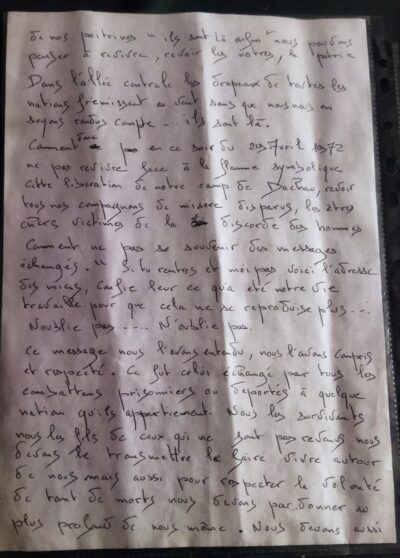 de nos poitrines "ils sont là enfin" nous pouvons
penser à revivre, revoir les notres, la patrie
Dans l'allée centrale les drapeaux de toutes les
nations fremissent au vent sans que nous nous en
soyons rendus compte... ils sont là.
Comment donc en ce soir du 29 avril 1972
ne pas revivre face à la flamme symbolique
cette liberation de notre camp de Dachau, revoir
tous nos compagnons de misere disparus, les etres
chers victimes de la discorde des hommes
Comment ne pas se souvenir des messages
échangés. "Si tu rentres et moi pas voici l'adresse
des miens, confie leur ce qu'a eté notre vie
travaille pour que cela ne se reproduise plus...
N'oublie pas .... N'oublie pas.
Ce message nous l'avons entendu, nous l'avons compris
et respecté. Ce fut celui échangé par tous les
combattans prisonniers ou deportés à quelque
nation qu'ils appartiennent. Nous les survivants
nous les fils de ceux qui ne sont pas revenus nous
devons le transmettre le faire vivre autour
de nous mais aussi pour respecter la volonté
de tant de morts nous devons pardonner au
plus profond de nous même. Nous devons aussi